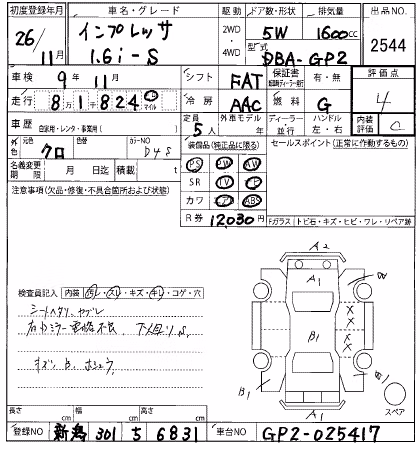 初度登録年月 車名・グレード 駆動 ドア数・形状 排気量 出品NO
26/11月 インプレッサ 1.6i-S 2WD・4WD 5W 1600cc 2544
型式 DBA-GP2
車検 9年11月 シフト FAT 保証書 有・無 評価点 4
走行 81824 マイル 冷房 AAC 燃料 G
車歴 自家用・レンタ・事業用( ) 定員 5人 外車モデル 年 ディーラー・並行 ハンドル 左・右 内装評価 C
外色 元色 クロ 色替 カラーNO D4S 装備品(純正品に限る) セールスポイント(正常に作動するもの)
名義変更期限 月 日迄 積載 t PS PW AW
注意事項(欠品・修復・不具合箇所および状態) SR TV
カワ ABS
R券 12,030円 Fガラス トビ石・キズ・ヒビ・ワレ・リペア跡
A2
A1
検査員記入 内装 汚レ・スレ・キズ・キレ・コゲ・穴
シートヘタリ、カブレ
右ドミラー電格不良 下廻りS
キズ、B、ホシュウ
B1
X X
X X
B1
A1
スペア
長さ cm 幅 cm 高さ cm
登録NO 新潟 301 ち 6831 車台NO GP2-025417